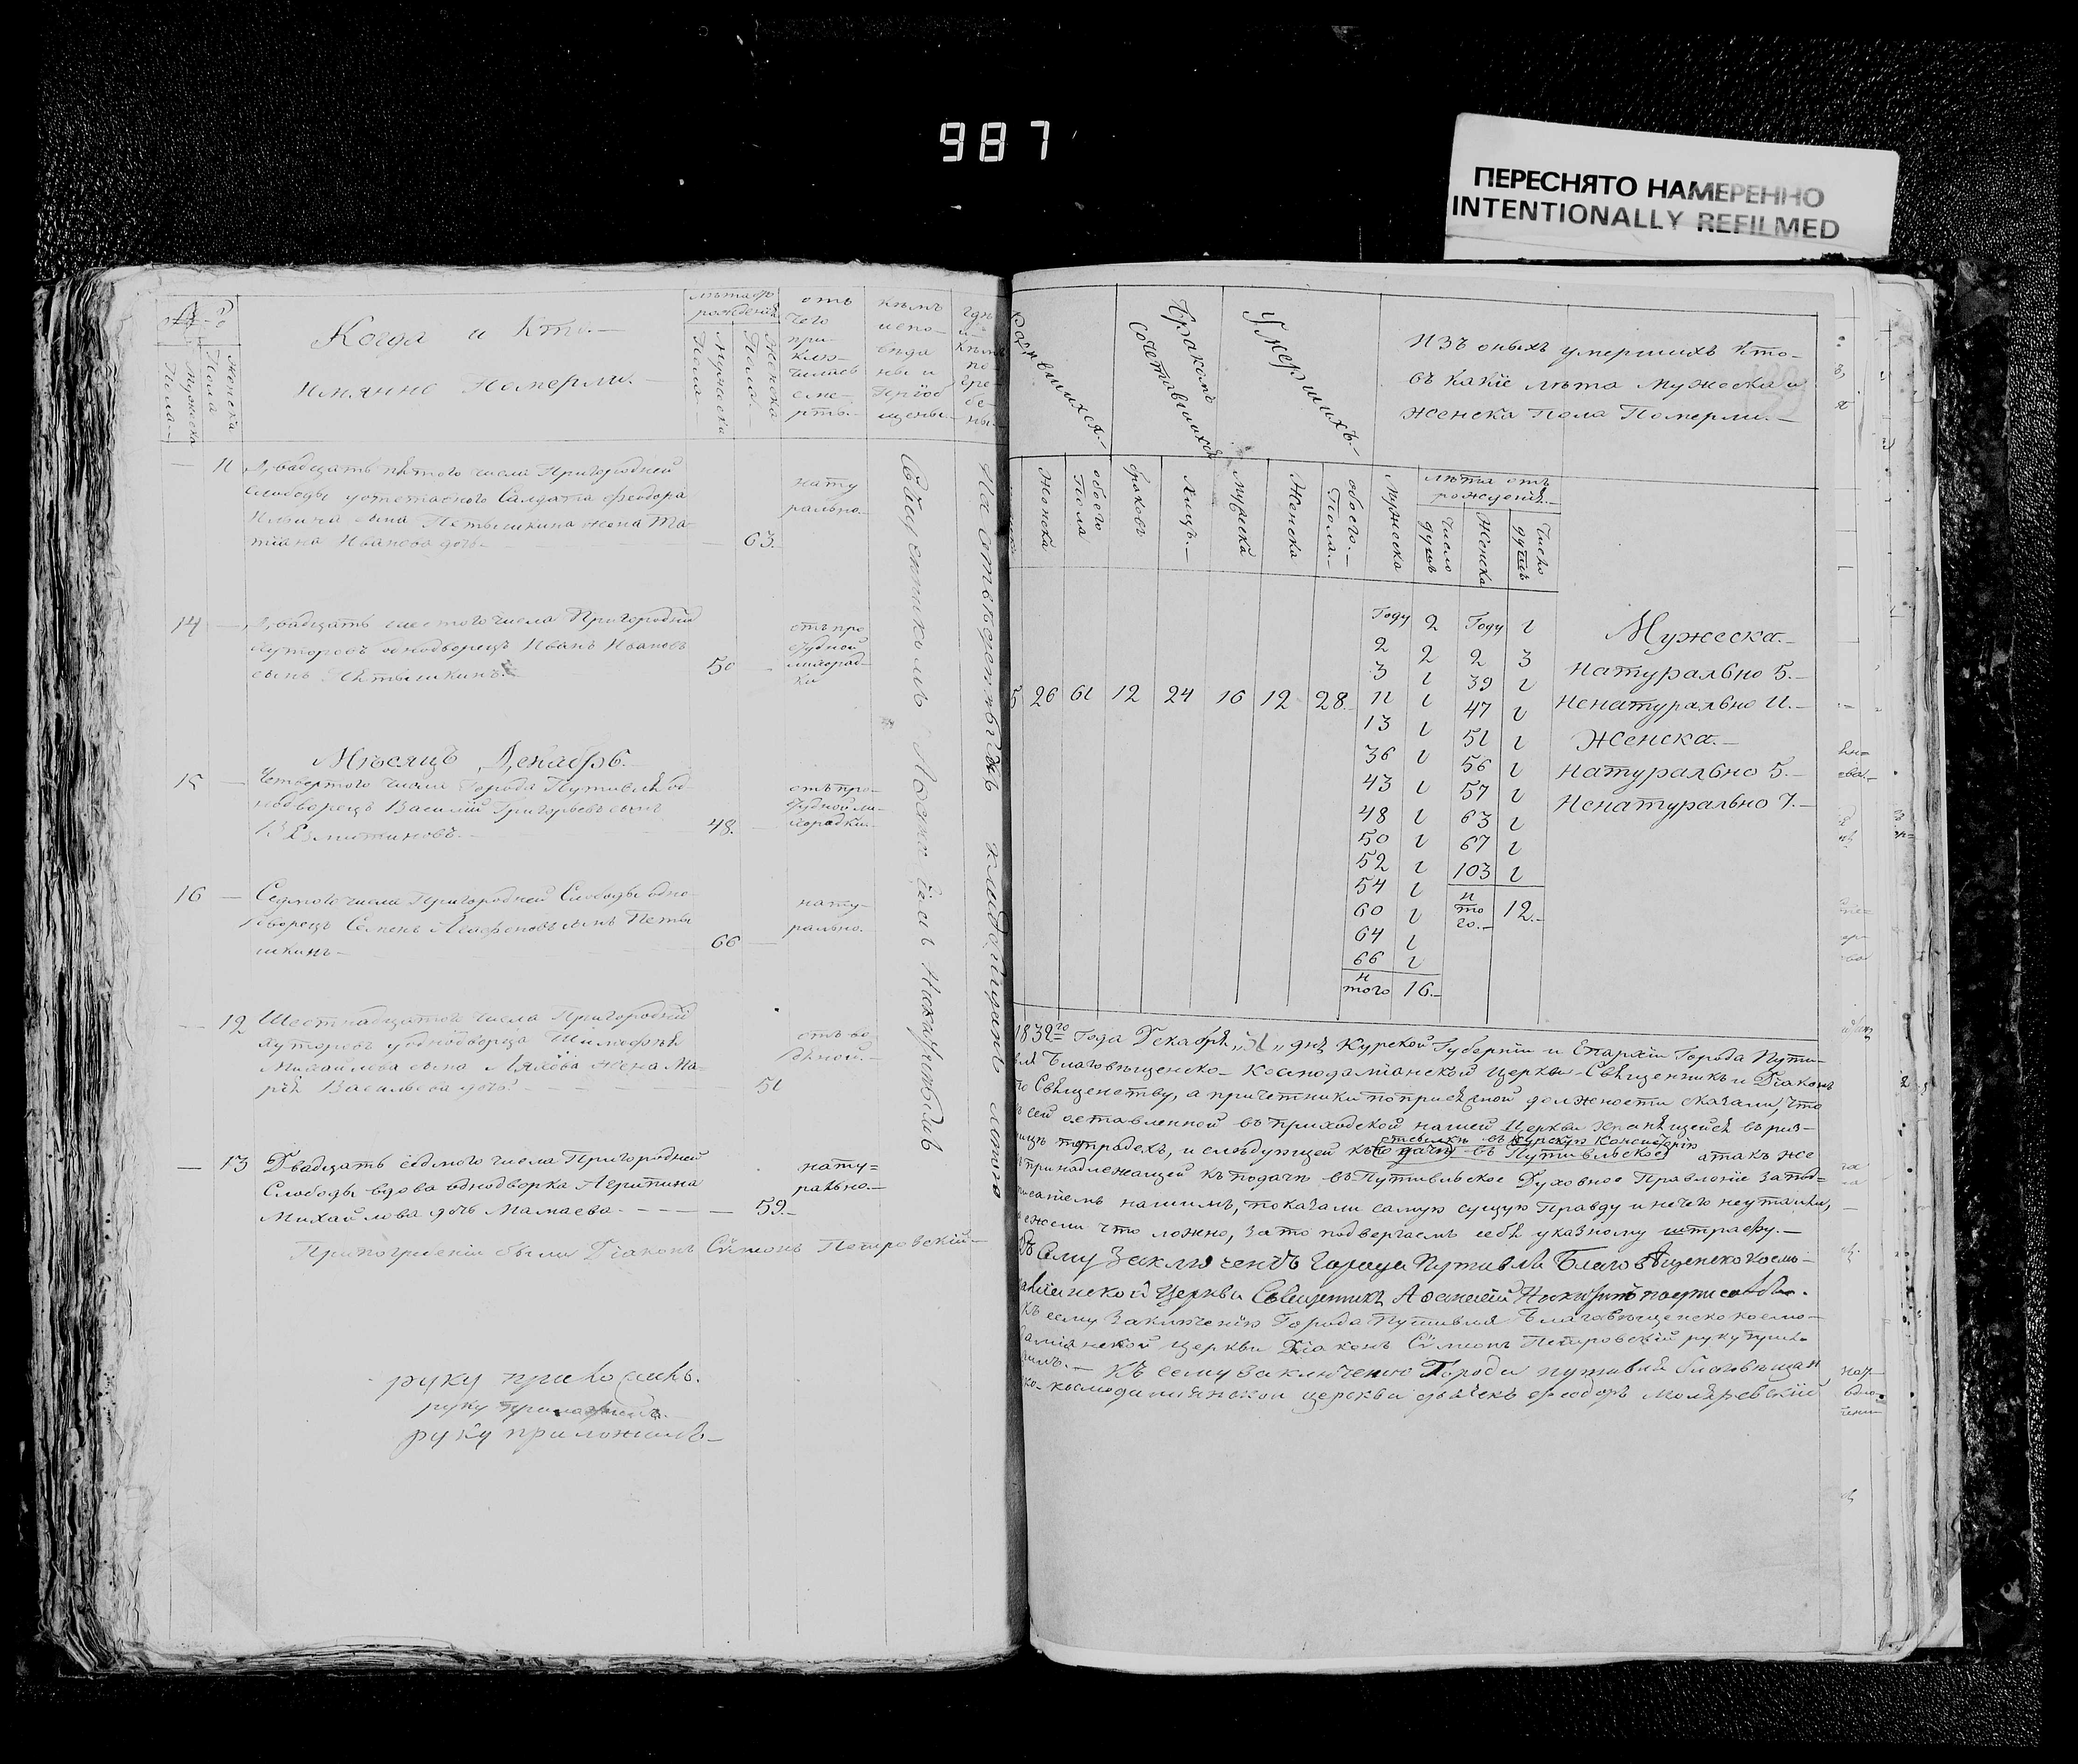 987
ПЕРЕСНЯТО НАМЕРЕННО
INTENTIONALLY REFILMED
Когда и Кто
имянно Померли.
Мужеска
Пола
Женска
Пола
лѣта отъ
рожденія
Мужеска
Пола
Женска
Пола
отъ
чего
при-
клю-
чилась
сме-
рть
кѣмъ
испо-
вѣда
ны и
пріоб
щены
гдѣ
и
кѣмъ
по
гре-
бе-
ны
11 Двадцать пятого числа Пригородней
Слободы у отставного Салдата Феодора
Ильина сына Петышкина жена Та-
тіана Иванова дочь 63.
нату
рально.
14 Двадцать шестого числа Пригородній
хуторовъ однодворецъ Иванъ Ивановъ
сынъ Петышкинъ 50
отъ про
студной
лихорад-
ки
Мѣсяцъ Декабрь.
15 Четвертого числа Города Путивля од-
нодворецъ Василій Григорьевъ сынъ
48.
отъ про-
студной ли-
хорадки
16 Седмого числа Пригородней Слободы одно-
дворецъ Семенъ сынъ Петы
шкинъ 66
нату-
рально.
12 Шестнадцатого числа Пригородній
хуторовъ у однодворца Тимофея
Михайлова сына Лялева жена Ма-
рія Васильева дочь 51
отъ во
дяной.
13 Двадцать седмого числа Пригородней
Слободы вдова однодворка Агрипина
Михайлова дочь Мамаева 59.
нату=
рально.
При погребеніи были Діаконъ Симеонъ
Священникомъ Афанасіемъ Никифоровымъ
На отведенномъ кладбищѣ
руку приложилъ.
руку приложилъ.
руку приложилъ
родившихся
Бракомъ
сочетавшихся
Умершихъ
Изъ оныхъ умершихъ кто
въ какіе лѣта Мужеска и
Женска Пола Померли.
Женска
обоего
Пола
браковъ
Лицъ.
мужеска
Женска
обоего
Пола.
Мужеска
лѣта отъ
рожденія.
Число
душъ
Женска
Число
душъ
5 26 61 12 24 16 12 28.
Году 2 Году 1
2 2 2 3
3 1 39 1
11 1 47 1
13 1 51 1
36 1 56 1
43 1 57 1
48 1 63 1
50 1 67 1
52 1 103 1
54 1 и
60 1 то 12.
64 1 го.
66 1
и
того 16.
Мужеска.
натурально 5.
Ненатурально 11.
Женска.
натурально 5.
Ненатурально 7.
1832го Года Декабря „31„ дня Курской Губерніи и Епархіи Города Пути-
вля Благовѣщенско-Космодаміанской церкви Священникъ и Діаконъ
по Священству, а причетники по присяжной должности сказали, что
въ сей оставленной въ приходской нашей Церкви хранящейся въ риз-
ницѣ тетрадехъ, и слѣдующей къ подачи въ Путивльское а такъ же
отсылки въ Курскую Консисторію
и принадлежащей къ подачи въ Путивльское Духовное Правленіе за под-
писаніемъ нашимъ, показали самую сущую Правду и нечего неутаили,
ежели что ложно, за то подвергаемъ себя указному штрафу.
Къ сему Заключенію города Путивля Благовѣщенско Косьмо-
даміанской Церкви Священникъ Афанасій Никифоровъ подписался.
Къ сему Заключенію Города Путивля Благовѣщенско космо-
даміанской церкви Діаконъ Симеонъ руку прило
жилъ.— Къ сему заключенію Города путивля благовѣщен
ско-космодаміянской церкви дьячекъ феодоръ